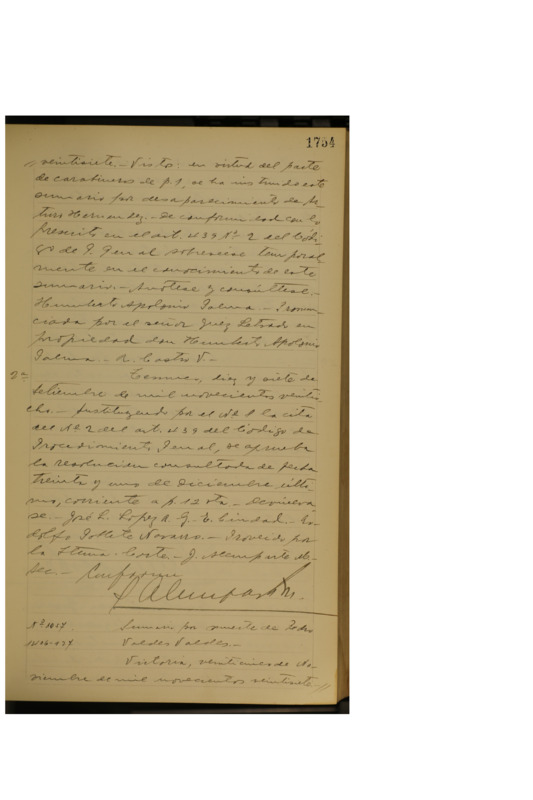 1754
// veintisiete.- Vistos: en virtud del parte
de carabineros de f.1, se ha instruido este
sumario por desaparecimiento de
Hernandez.- De conformidad con lo
prescrito en el art. 439 Nº 2 del Códi-
go de P. Penal sobreseese temporal
mente en el conocimiento de este
sumario.- Anótese y consúltese.-
Humberto Apolonio Palma.- Pronun-
ciada por el señor Juez Letrado en
propiedad don Humberto Apolonio
Palma.- R. Castro V.-
2ª Temuco, diez y siete de
Setiembre de mil novecientos veintio
cho.- Sustituyendo por el Nº 1 la cita
del Nº 2 del art. 439 del Código de
Procedimiento Penal, se aprueba
la resolución consultada de fecha
treinta y uno de Diciembre últi-
mo, corriente a f. 12 vta.- Devuélva
se.- José L. Lopez A. G. E. Ciudad.- Ro-
dolfo Navarro.- Proveido por
la Iltma. Corte.- J.
Sec.- Conforme
Nº 1017. Sumario por muerte de Pedro
Valdes Valdes.-
Victoria, de No-
viembre de mil novecientos veintisiete.-//